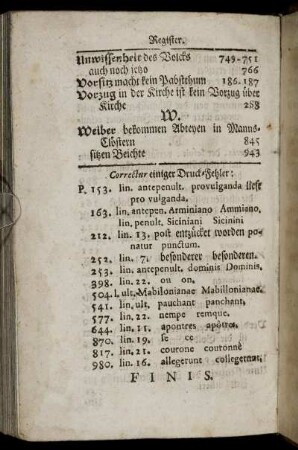 Register.
Unwissenheit des Volcks 749-751
auch noch jetzo 766
Vorsitz macht kein Pabstthum 186. 187
Vorzug in der Kirche ist kein Vorzug über
Kirche 268
W.
Weiber bekommen Abteyen in Manns-
Clöstern 845
sitzen Beichte 943
Correctur einiger Druck-Fehler:
P. 153. lin. antepenult. provulganda liese
pro vulganda.
163. lin. antepen. Arminiano Ammiano,
lin. penult. Siciniani Sicinini
212. lin. 13. post entzücket werden po-
natur punctum.
252. lin. 7. besonderer besonderen.
253. lin. antepenult. dominis Dominis.
398. lin. 22. ou on.
504. l. ult. Mabilonianae Mabillonianae.
541. lin. ult. pauchant panchant,
577. lin. 22. nempe remque.
644. lin. 11. apontres apôtres.
870. lin. 19. se ce
817. lin. 21. courone couronne
980. lin. 16. allegerunt collegerunt.
FINIS.